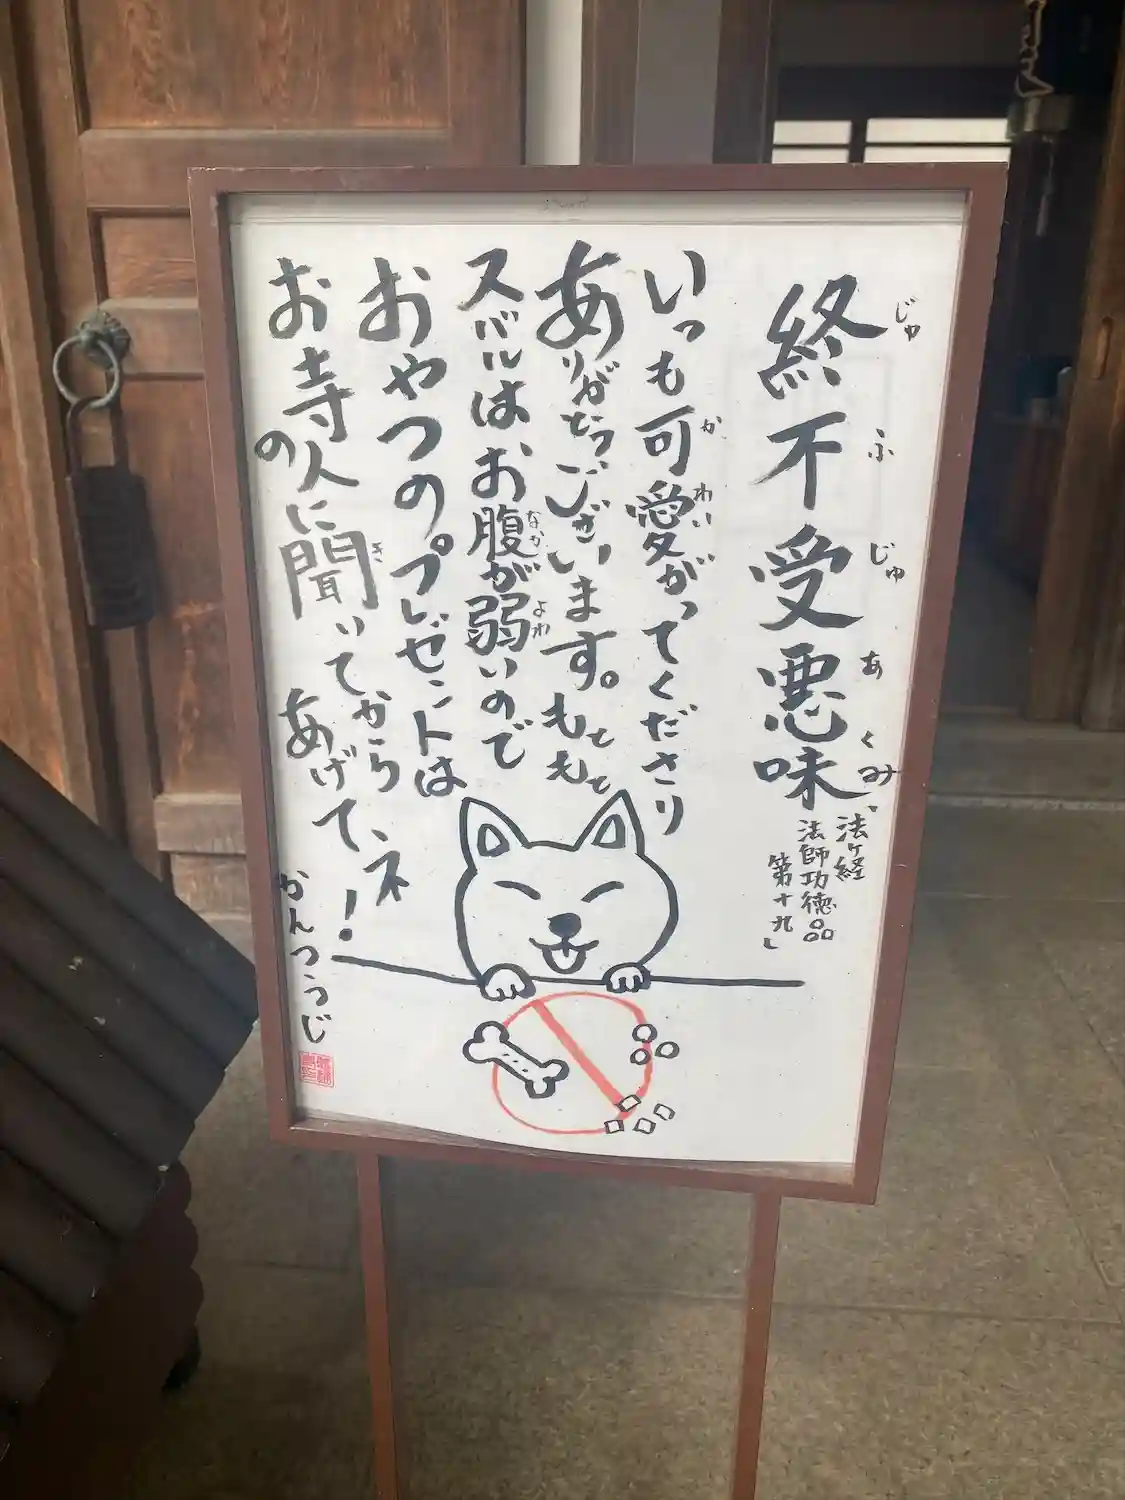 終不受悪味
じゅ ふ じゅ あ く み
法ヶ経
法師功徳品
第十九」
いつも可愛がってくださり
か わい
ありがとうございます。もともと
スバルは、お腹が弱いので
なか よわ
おやつのプレゼントは
お寺の人に聞いてから
き
あげて、ネ!
かんつうじ